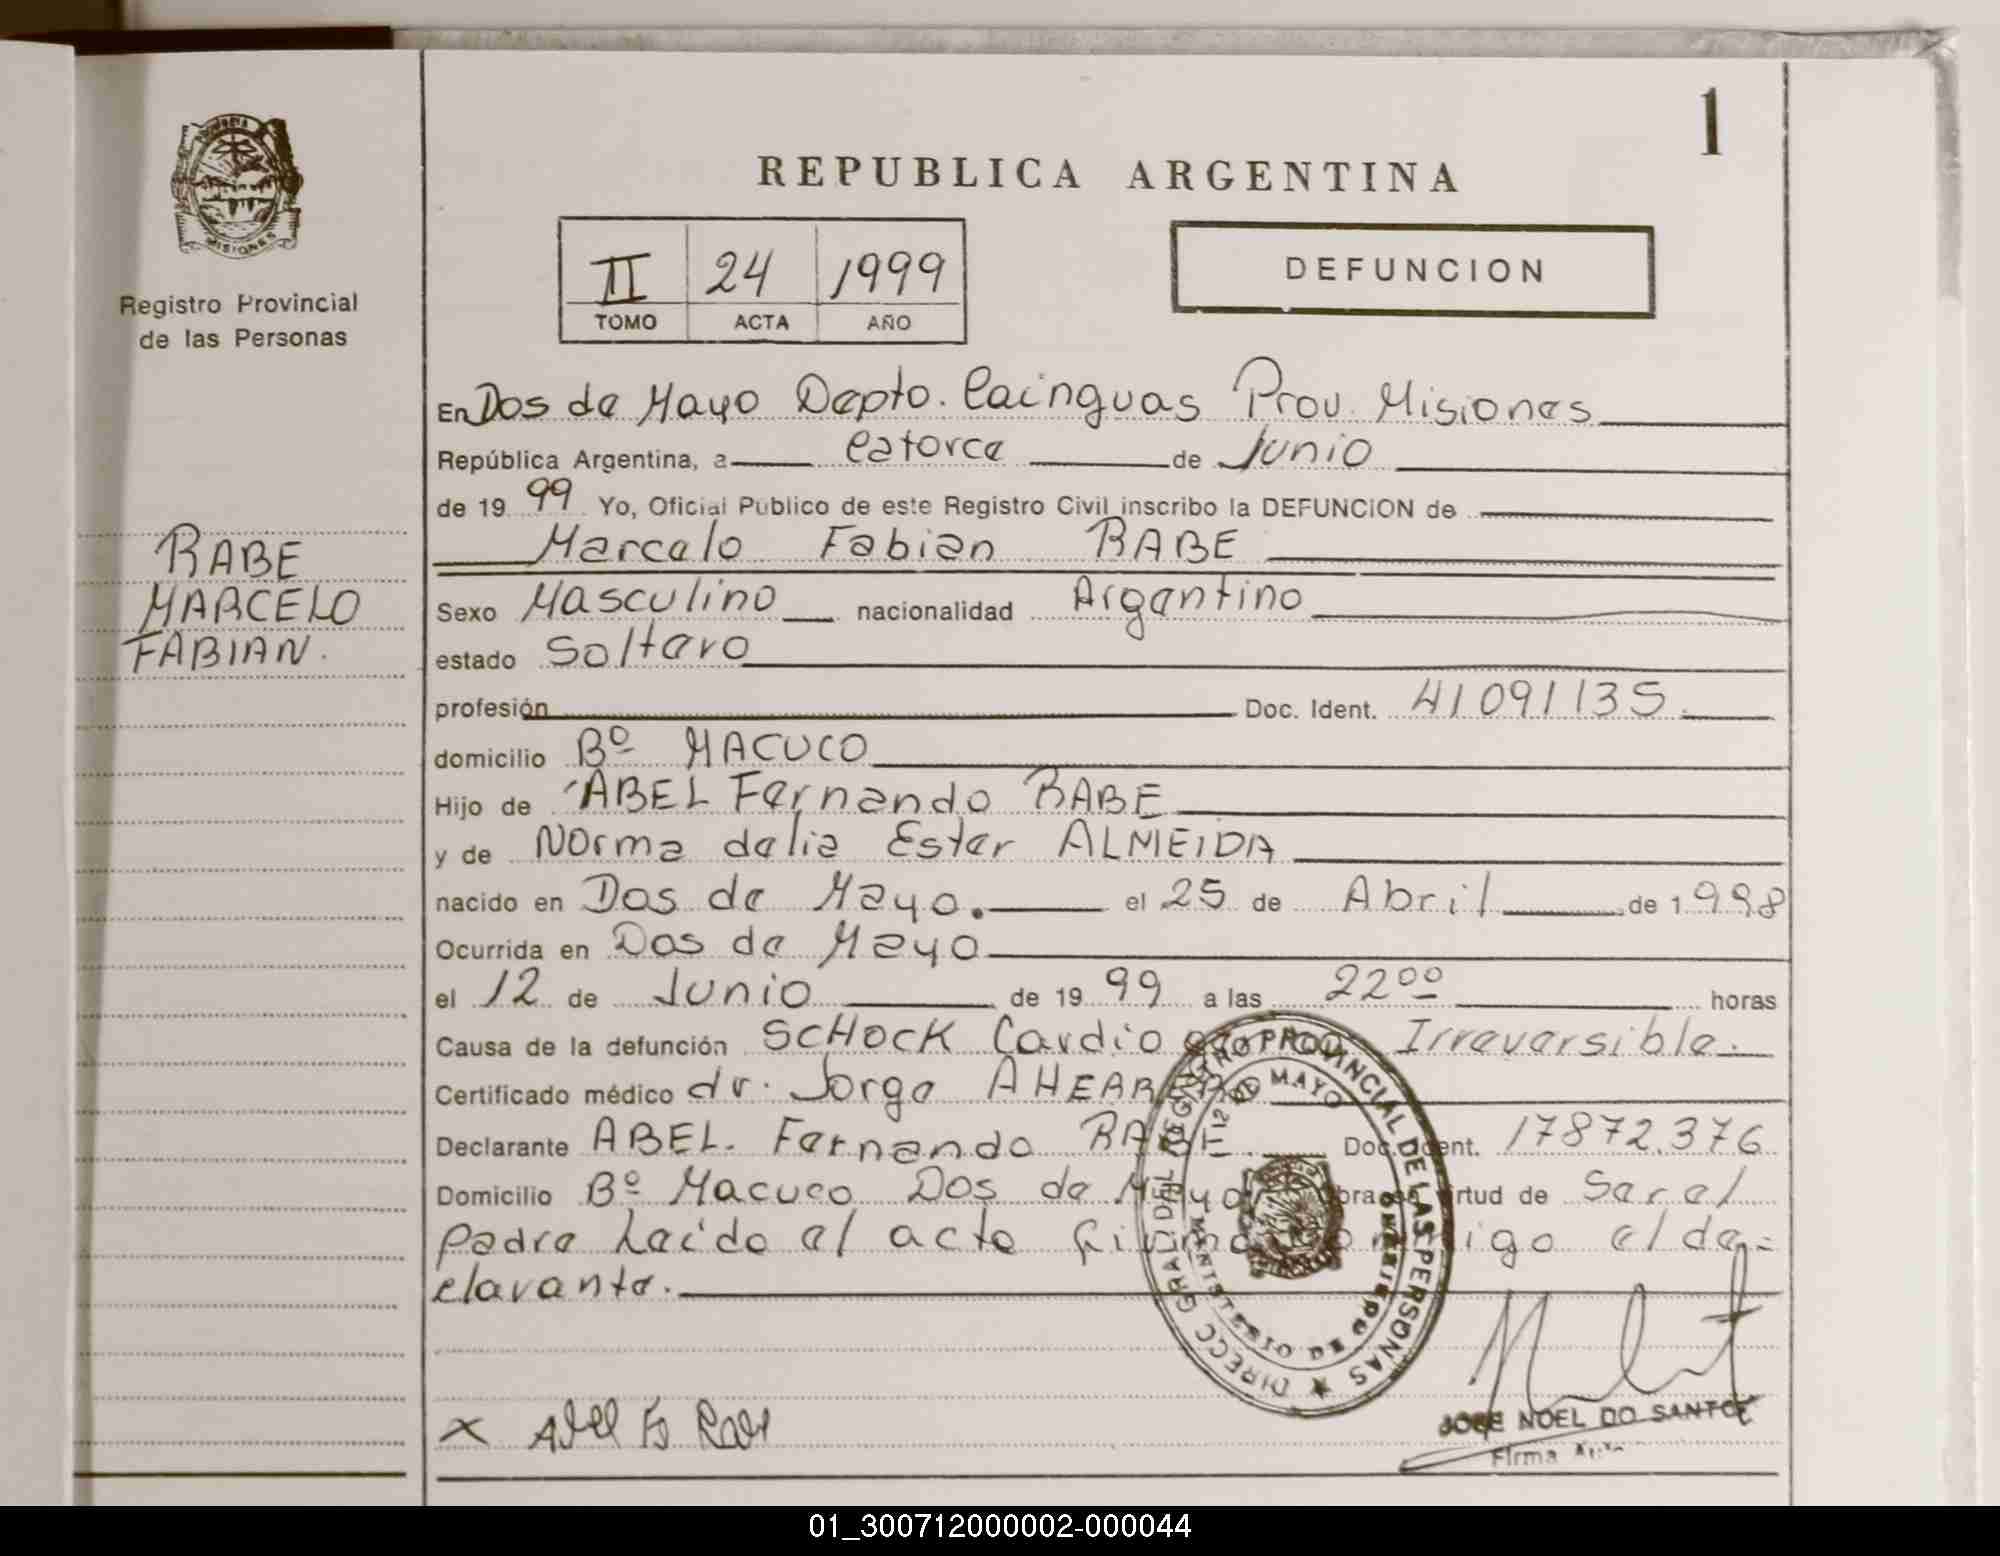 1
PROVINCIA
MISIONES
Registro Provincial
de las Personas
REPUBLICA ARGENTINA
II 24 1999
TOMO ACTA AÑO
DEFUNCION
RABE
MARCELO
FABIAN.
En Dos de Mayo Depto. Cainguas Prov. Misiones
República Argentina, a catorce de Junio
de 19 99 Yo, Oficial Público de este Registro Civil inscribo la DEFUNCION de
Marcelo Fabian RABE
Sexo Masculino nacionalidad Argentino
estado Soltero
profesión Doc. Ident. 41091135.
domicilio Bº MACUCO
Hijo de ABEL Fernando RABE
y de Norma delia Ester ALMEIDA
nacido en Dos de Mayo. el 25 de Abril de 1998
Ocurrida en Dos de Mayo
el 12 de Junio de 19 99 a las 22ºº horas
Causa de la defunción SCHOCK Cardio Irreversible.
Certificado médico dr. Jorge
Declarante ABEL. Fernando RABE Doc. Ident. 17872.376
Domicilio Bº Macuco Dos de Mayo Obra en virtud de Ser el
padre Leido el acta firma conmigo el de=
clarante.
DIRECC GRAL DEL REGISTRO PROVINCIAL DE LAS PERSONAS
DE MAYO
MINISTERIO DE GOBIERNO
x Abel F. Rabe
JOSE NOEL DO SANTOS
Firma
01_300712000002-000044